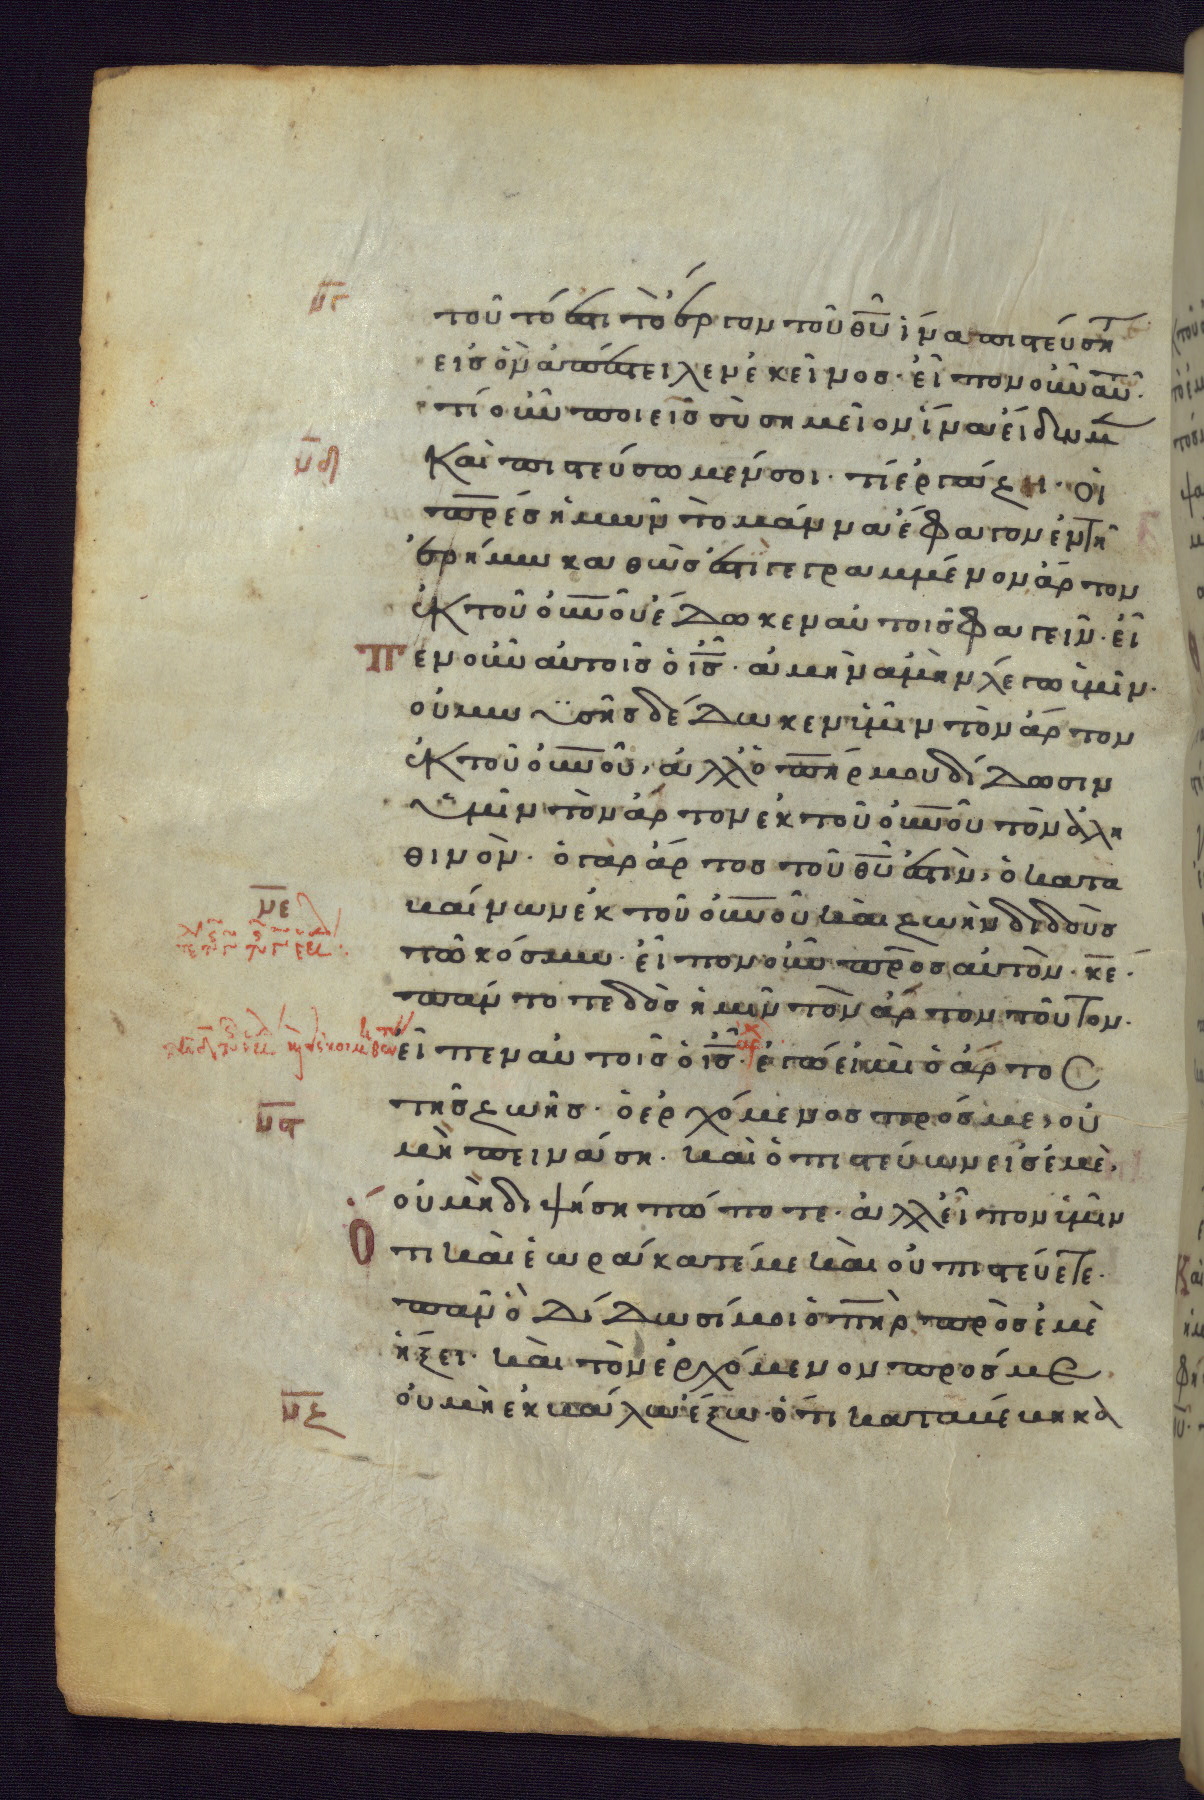 μγ
τοῦτό ἐστι τὸ ἔργον τοῦ θυ̅ ἵνα πιστεύσητ
εἰς ὃν ἀπέστειλεν ἐκεῖνος· εἶπον οὖν αὐ̅·
τί οὖν ποιεῖς σὺ σημεῖον ἵνα εἴδωμ
μδ
καὶ πιστεύσωμέν σοι· τί ἐργάζη· οἱ
πρ̅ες ἡμῶν τὸ μάννα ἔφαγον ἐν τῆ
ἐρήμω καθώς ἐστι γεγραμμένον ἄρτον
ἐκ τοῦ οὐνοῦ ἔδωκεν αὐτοῖς φαγεῖν· εἶ
πεν οὖν αὐτοῖς ὁ ις̅· ἀμὴν ἀμὴν λέγω ὑμῖν·
οὐ μωϋσῆς δέδωκεν ὑμῖν τὸν ἄρτον
ἐκ τοῦ οὐνοῦ, ἀλλ' ὁ πηρ μου δίδωσιν
ὑμῖν τὸν ἄρτον ἐκ τοῦ οὐνοῦ τὸν ἀλη
θινόν· ὁ γὰρ ἄρτος τοῦ θυ̅ ἐστὶν, ὁ κατα
με
καίνων ἐκ τοῦ οὐνοῦ καὶ ζωὴν διδοὺς
τῶ κόσμω· εἶπον οὖν πρὸς αὐτόν· κε̅·
πάντοτε δὸς ἡμῖν τὸν ἄρτον τοῦτον·
εἶπεν αὐτοῖς ὁ ις̅· ἐγώ εἰμι ὁ ἄρτος
μς
τῆς ζωῆς· ὁ ερχόμενος πρός με, οὐ
μὴ πεινάση· καὶ ὁ πιστεύων εἰς ἐμὲ,
οὐ μὴ διψήση πώποτε· ἀλλ' εἶπον ὑμῖν
ὅτι καὶ ἑωράκατέ με καὶ οὐ πιστεύετε·
πᾶν ὃ δίδωσί μοι ὁ πηρ πρὸς ἐμὲ
ἥξει· καὶ τὸν ἐρχόμενον πρός με
μζ
οὐ μὴ ἐκβάλω ἔξω· ὅτι καταβέβηκα